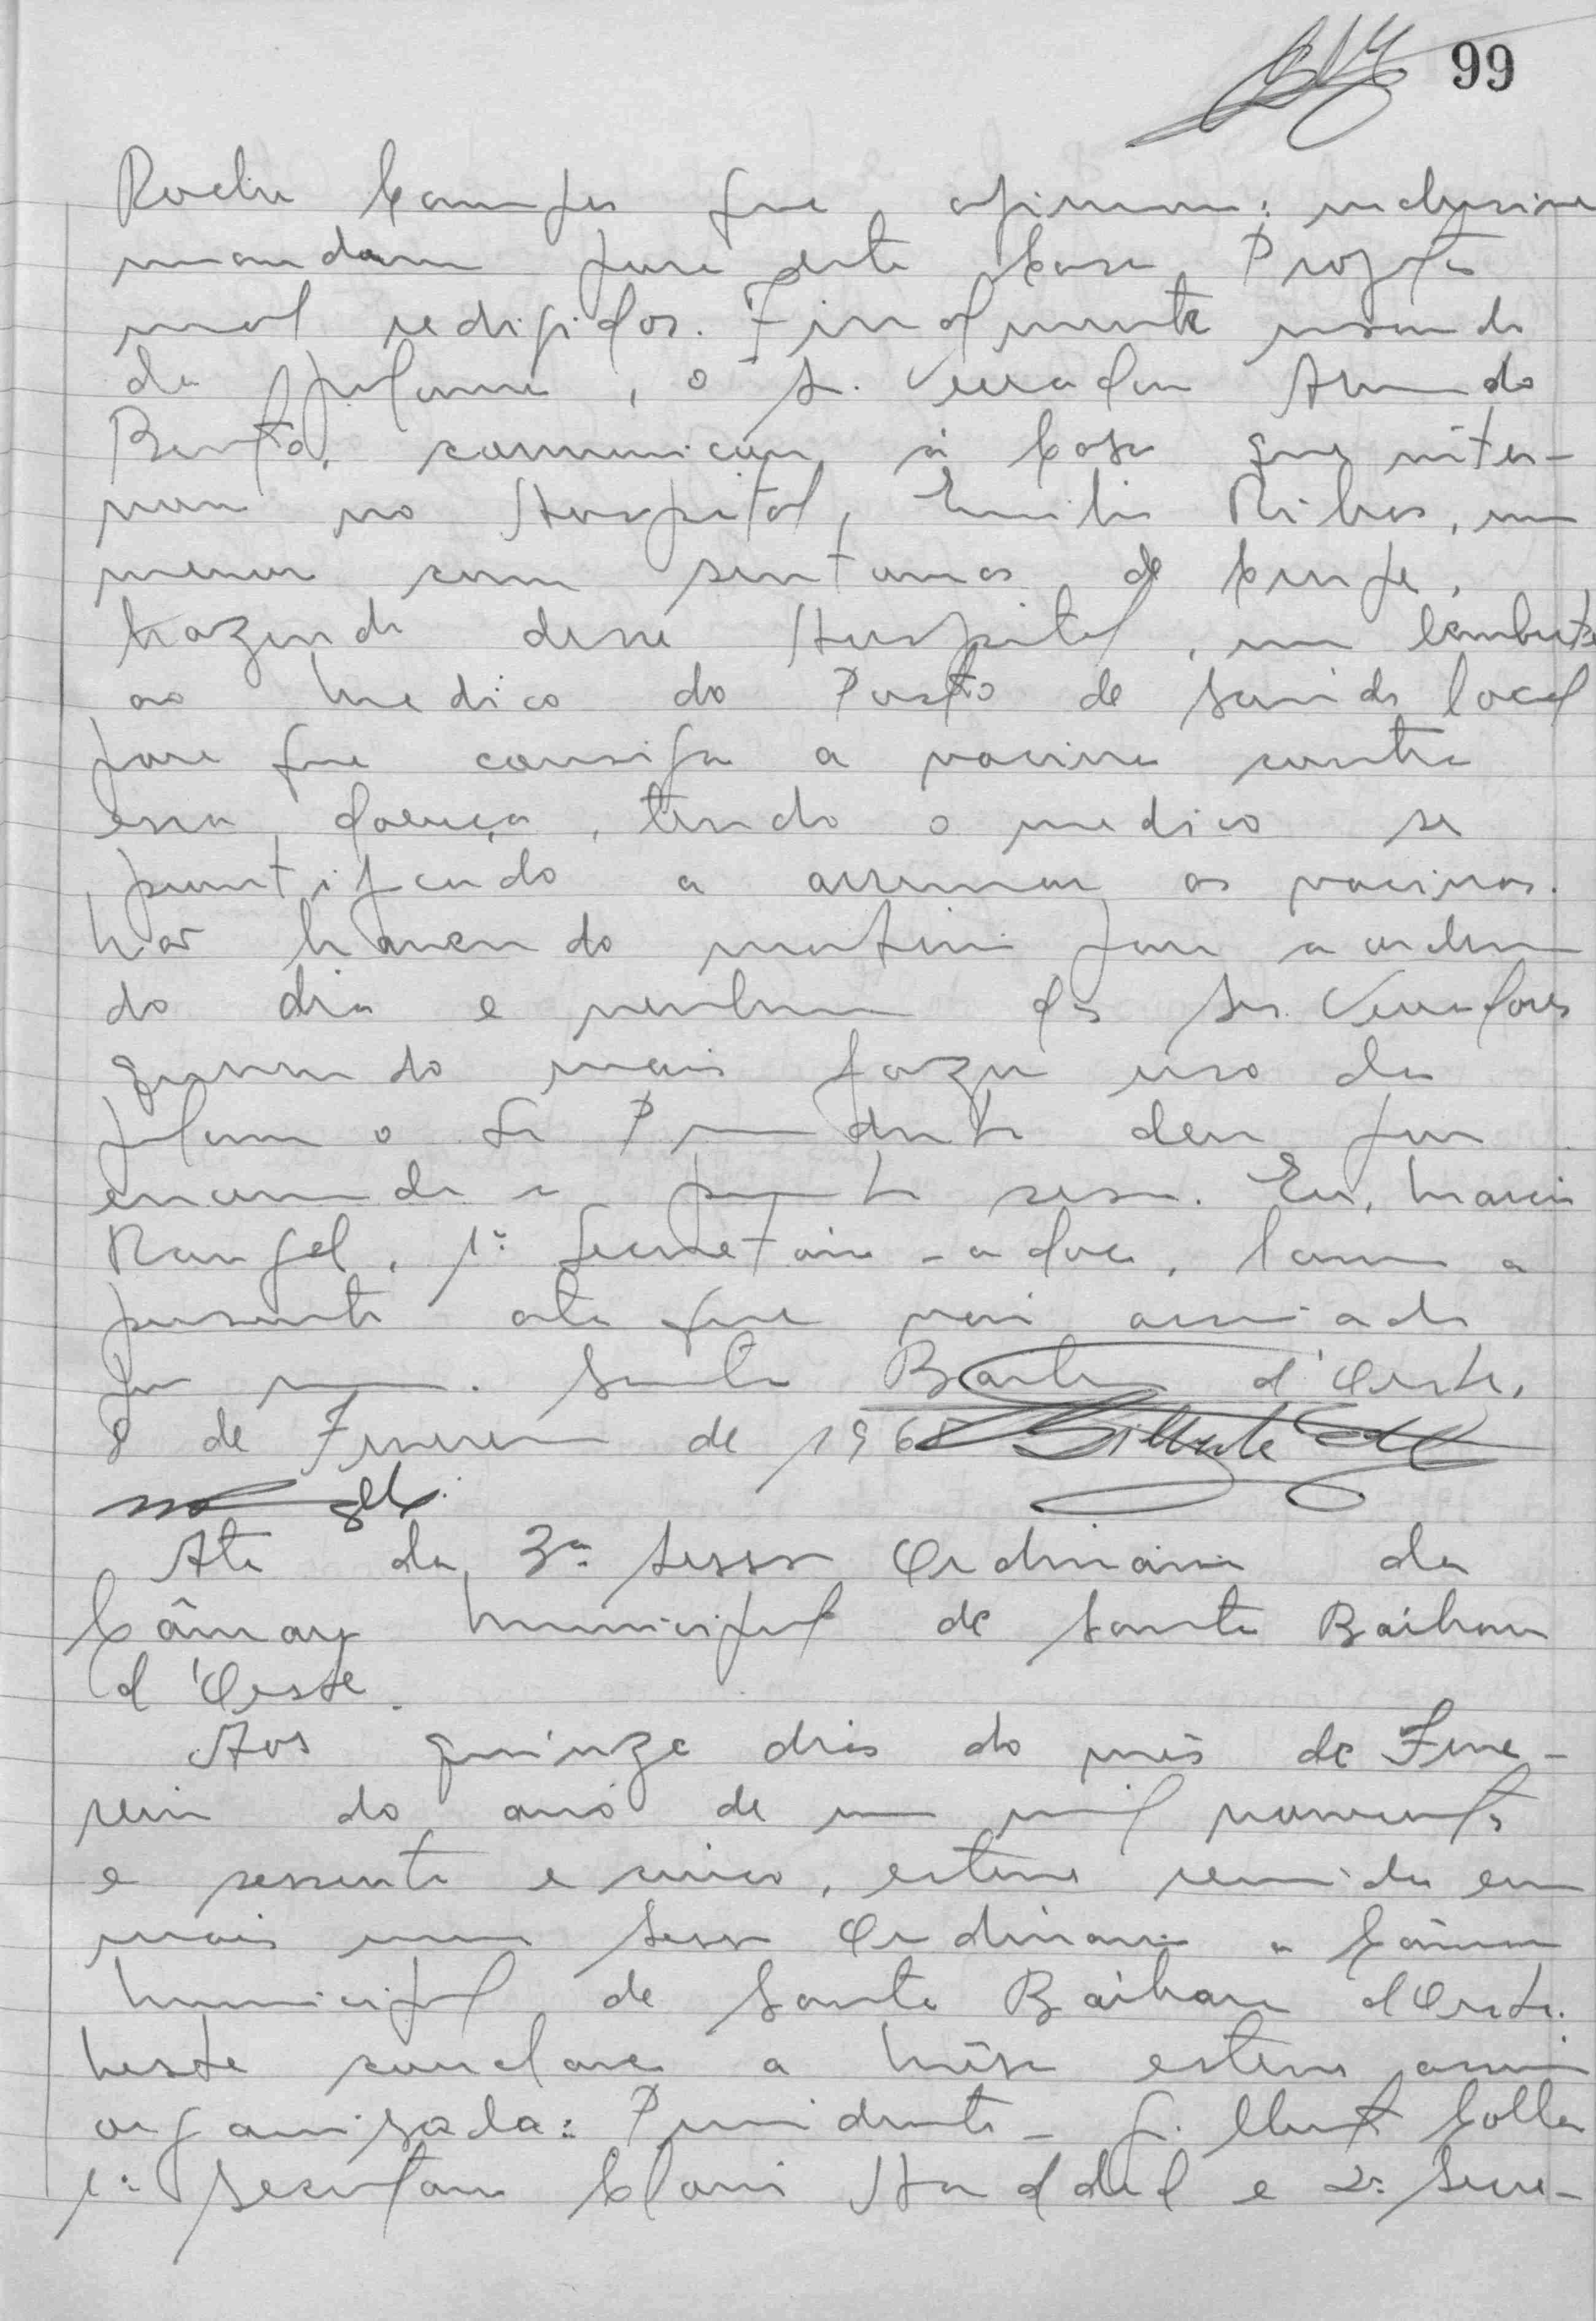 99
Rocha Campos que afirmam: inclusive
mandam para esta Casa Projetos
mal redigidos. Finalmente usando
da palavra, o Sr. Vereador
Bento, comunicou à Casa que inter-
nou no Hospital, Emilio Ribas, um
menor com sintomas de Crupe,
trazendo desse Hospital, um
ao Medico do Posto de Saúde local
para que consiga a vacina contra
essa doença, tendo o medico se
prontificado a arrumar as vacinas.
Não havendo materia para a ordem
do dia e nenhum dos Srs. Vereadores
querendo mais fazer uso da
palavra o Sr Presidente deu por
encerrada a presente sessão. Eu,
Rangel, 1º Secretário - adoc, lavrei a
presente ata que vai assinada
por mim. Santa Barbara d'Oeste,
8 de Fevereiro de 196
Ata da 3ª Sessão Ordinária da
Câmara Municipal de Santa Bárbara
d'Oeste.
Aos quinze dias do mês de Feve-
reiro do ano de um mil novecentos
e sessenta e cinco, esteve reunida em
mais uma Sessão Ordinária a Câmara
Municipal de Santa Bárbara d'Oeste.
Neste conclave a Mêsa esteve assim
organizada: Presidente -
1º Secretario e 2º Secre-